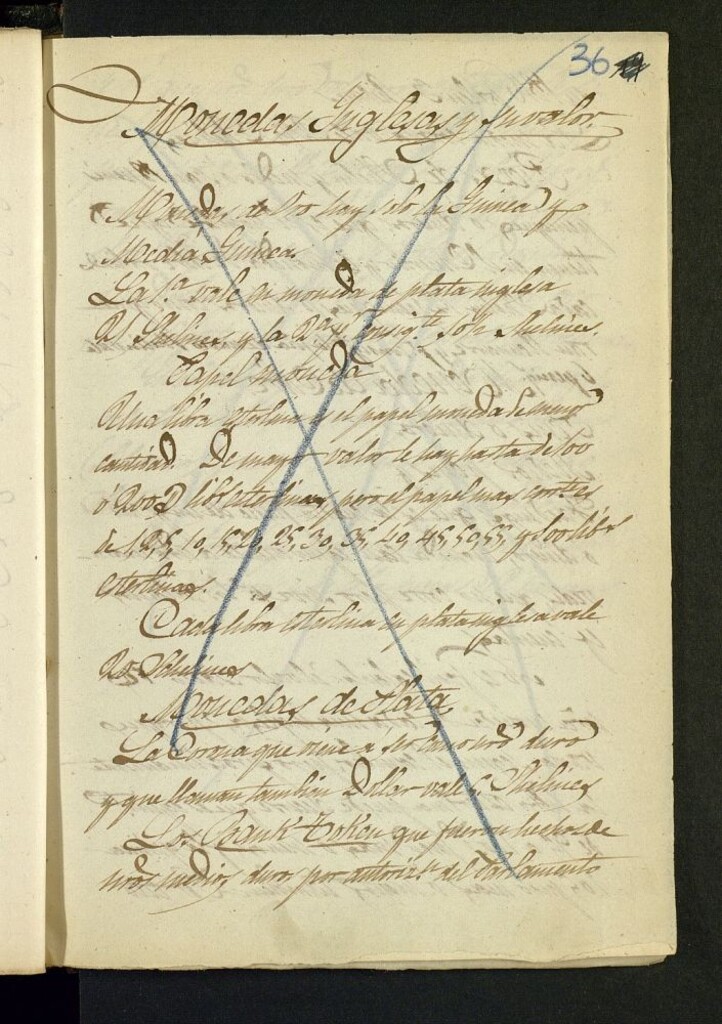 36
Monedas Inglesas y su valor.
Monedas de Oro hay solo la Guinea y
Media Guinea.
La 1.a vale en moneda de plata inglesa
21 Shelines, y la 2.a 10 Shelines.
Papel moneda
Una libra esterlina es el papel moneda de menor
cantidad. De mayor valor le hay hasta de 100
ó 200 libs esterlinas, pero el papel mas
de 1, 2, 5, 10, 15, 20, 25, 30, 35, 40, 45, 50, 55, y 100 libs
esterlinas.
Cada libra esterlina en plata inglesa vale
20 Schelines
Monedas de Plata,
La Corona que viene á ser como nro duro
y que llaman tambien Dollar vale 5 Shelines
Los Bank Token que fueron hechos de
nros medios duros por autoriz.n del Parlamento